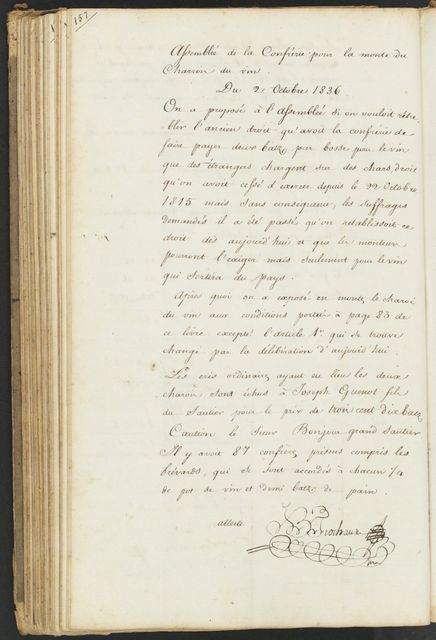 157
Assemblée de la Confrérie pour la monte du
Charroi du vin.
Du 2 Octobre 1836
On a proposé à l'assemblée si on vouloit réta-
blir l'ancien droit qu'avoit la confrérie de
faire payer deux batz par bosse pour le vin
que des étrangers chargent sur des chars, droit
qu'on avoit cessé d'exercer depuis le 22 Octobre
1815 mais sans consequence, les suffrages
demandés il a été passé qu'on rétablissoit ce
droit dès aujourd'hui et que les monteurs
pourront l'exiger mais seulement pour le vin
qui sortira du pays.
Après quoi on a exposé en monte le charoi
du vin aux conditions portées à page 83 de
ce livre excepté l'article 1er qui se trouve
changé par la délibération d'aujourd'hui.
Les cris ordinaires ayant eu lieu les deux
charois sont échus à Joseph Guenot fils
du Sautier pour le prix de trois cent dix batz
Caution le Sieur Bonjour grand Sautier
Il y avoit 87 confrères présens compris les
brévards, qui se sont accordés à chacun 1/4
de pot de vin et demi batz de pain.
atteste